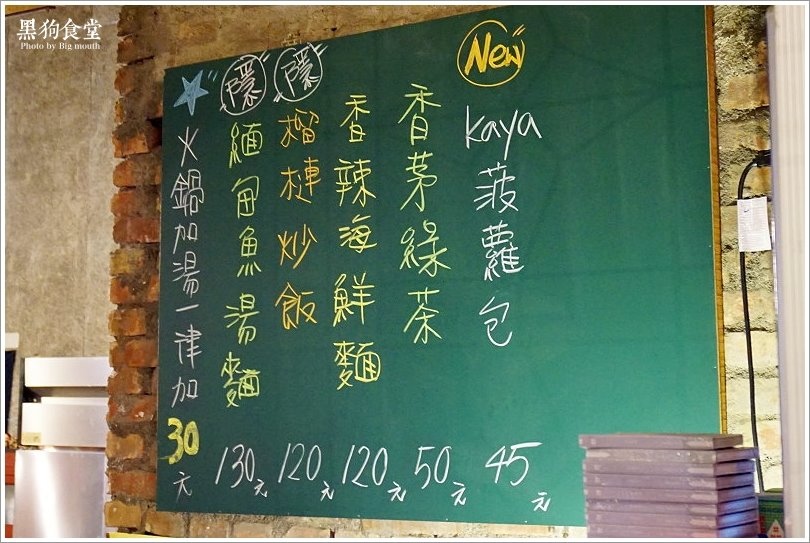 黑狗食堂
Photo by Big mouth
New
kaya菠蘿包
45元
香茅綠茶
50元
香辣海鮮麵
120元
隱
榴槤炒飯
120元
隱
緬甸魚湯麵
130元
火鍋加湯一律加30元